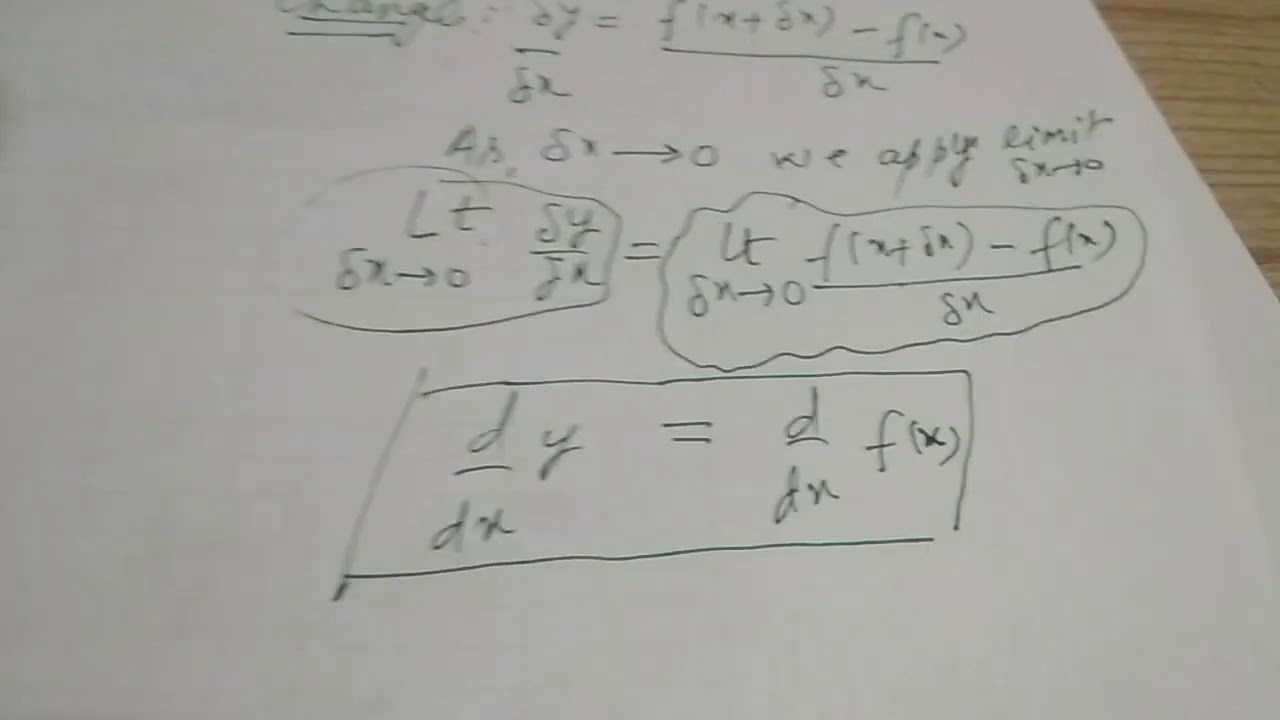 Change: δy/δx = f(x+δx) - f(x)/δx
As δx → 0 we apply limit δx→0
Lt δx→0 δy/δx = Lt δx→0 f(x+δx) - f(x)/δx
d/dx y = d/dx f(x)